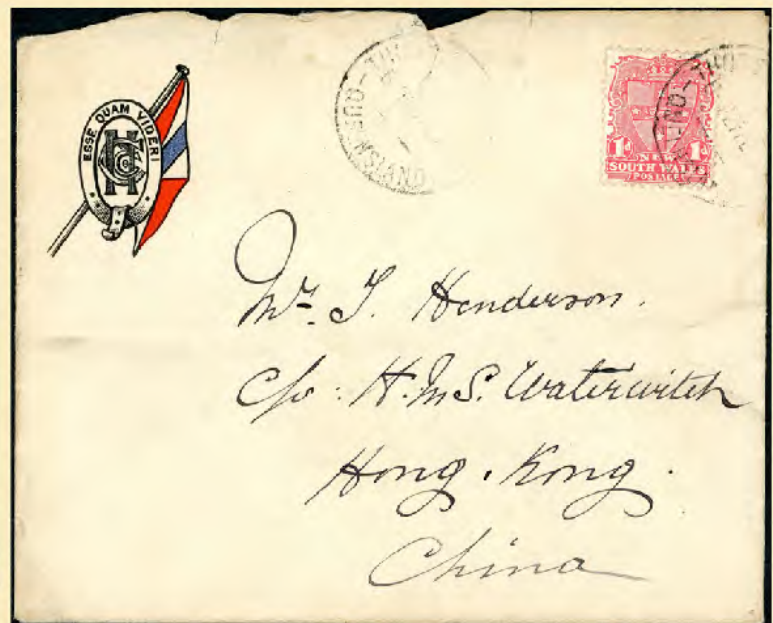 ESSE QUAM VIDERI
1d 1d
NEW
SOUTH WALES
POSTAGE
Mr. T. Henderson.
c/o: H.M.S. Waterwitch
Hong. Kong.
China